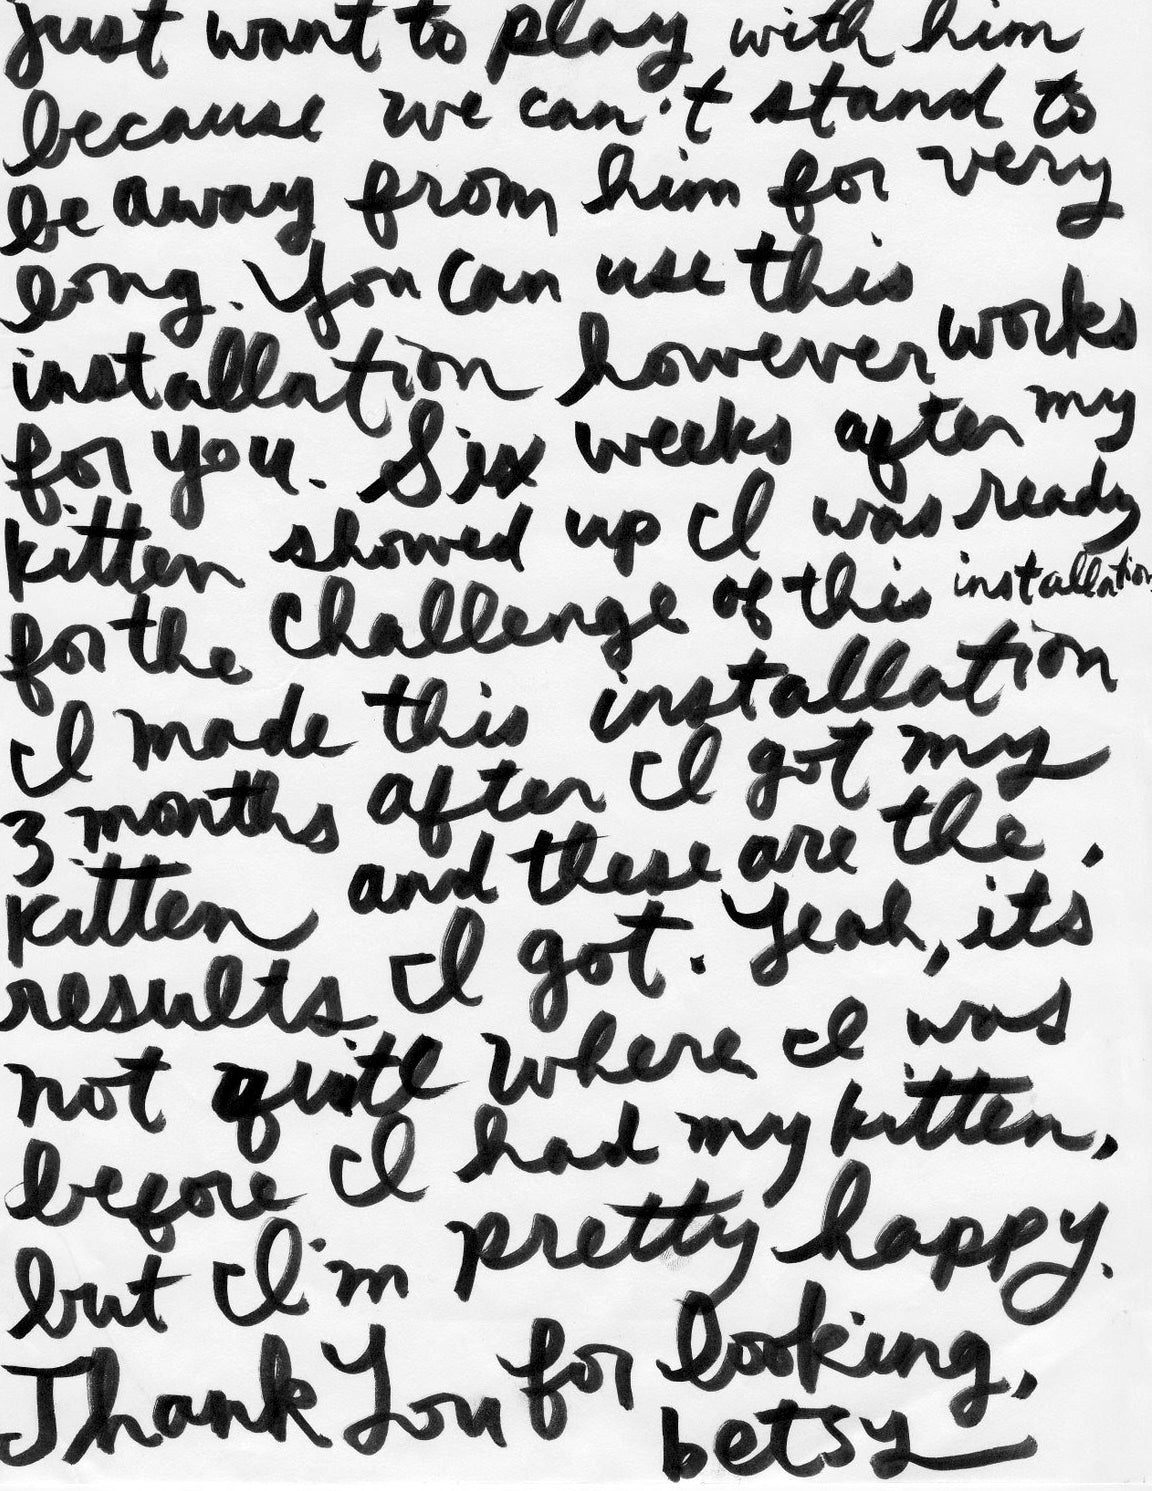 just want to play with him
because we can't stand to
be away from him for very
long. You can use this
installation however works
for you. Six weeks after my
kitten showed up I was ready
for the challenge of this installation.
I made this installation
3 months after I got my
kitten and these are the
results I got. Yeah, it's
not quite where I was
before I had my kitten,
but I'm pretty happy.
Thank You for looking,
betsy